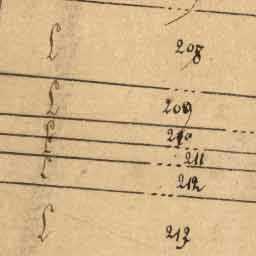 L 208
L 209
L 210
L 211
L 212
L 213